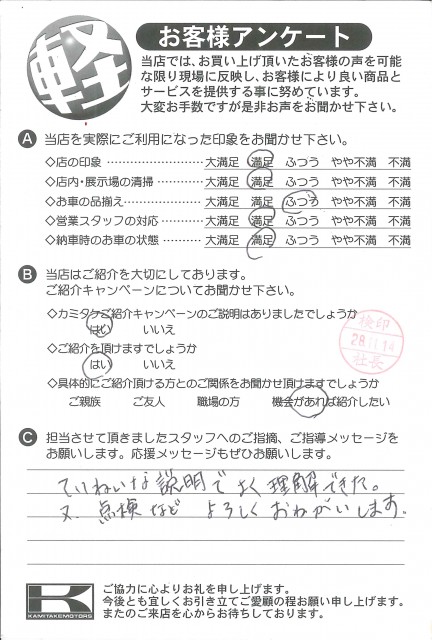 軽
お客様アンケート
当店では、お買い上げ頂いたお客様の声を可能
な限り現場に反映し、お客様により良い商品と
サービスを提供する事に努めています。
大変お手数ですが是非お声をお聞かせ下さい。
A 当店を実際にご利用になった印象をお聞かせ下さい。
◇店の印象 ………………… 大満足 満足 ふつう やや不満 不満
◇店内・展示場の清掃 ………… 大満足 満足 ふつう やや不満 不満
◇お車の品揃え ……………… 大満足 満足 ふつう やや不満 不満
◇営業スタッフの対応 ………… 大満足 満足 ふつう やや不満 不満
◇納車時のお車の状態 ………… 大満足 満足 ふつう やや不満 不満
B 当店はご紹介を大切にしております。
ご紹介キャンペーンについてお聞かせ下さい。
◇カミタケご紹介キャンペーンのご説明はありましたでしょうか
はい いいえ
◇ご紹介を頂けますでしょうか
はい いいえ
◇具体的にご紹介頂ける方とのご関係をお聞かせ頂けますでしょうか
ご親族 ご友人 職場の方 機会があれば紹介したい
検印
28.11.14
社長
C 担当させて頂きましたスタッフへのご指摘、ご指導メッセージを
お願いします。応援メッセージもぜひお願いします。
ていねいな説明でよく理解できた。
又、点検など よろしくおねがいします。
K
KAMITAKEMOTORS
ご協力に心よりお礼を申し上げます。
今後とも宜しくお引き立てご愛顧の程お願い申し上げます。
またのご来店を心からお待ちしております。